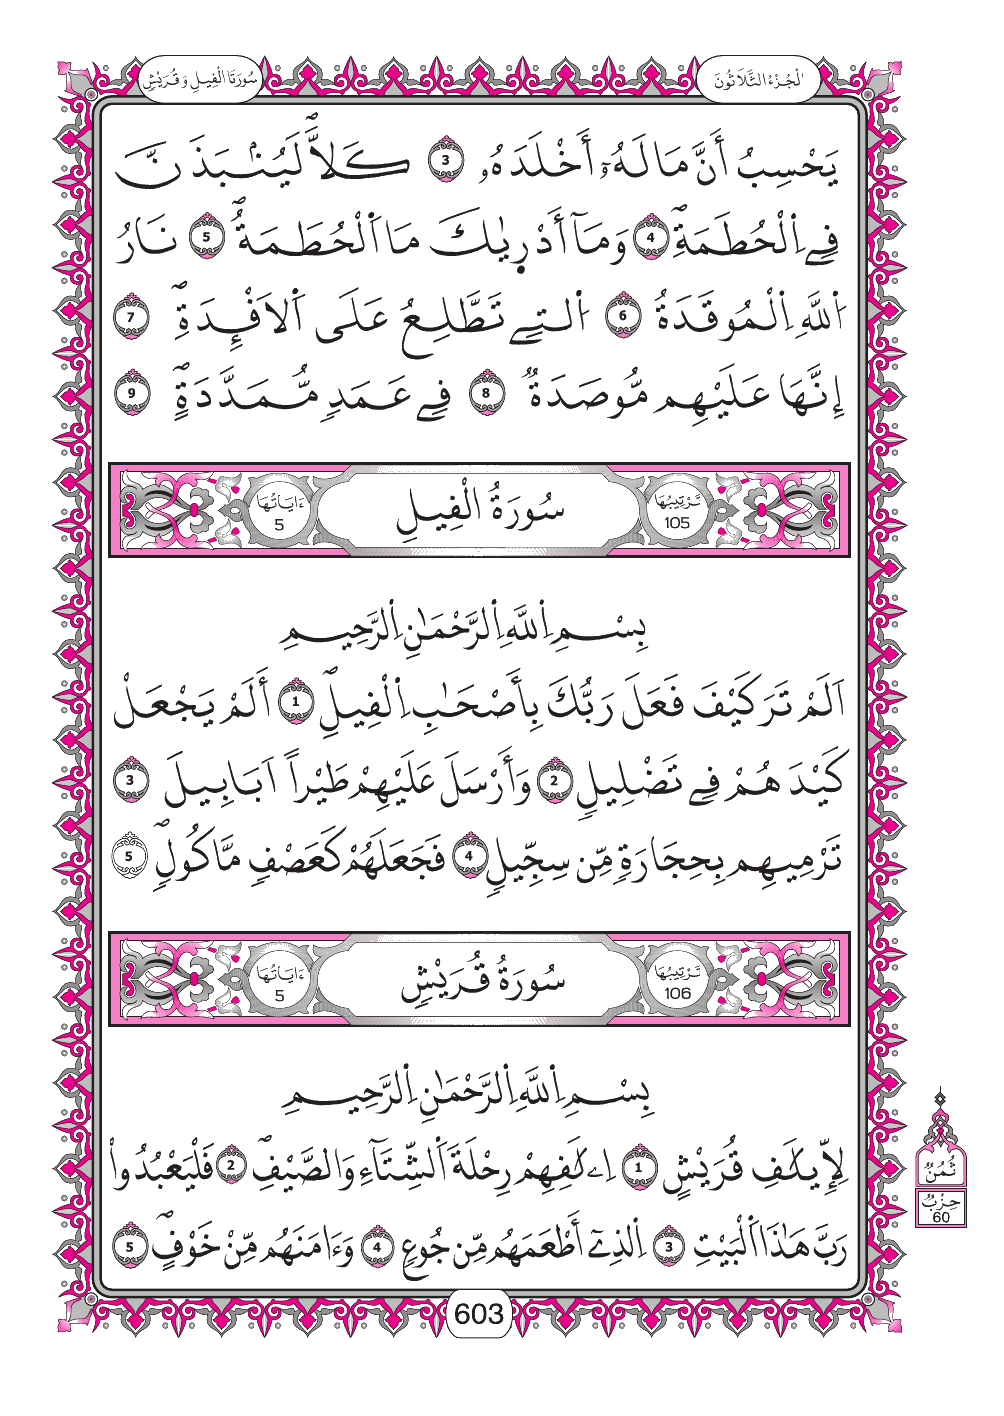 سُورَتَا الْفِيلِ وَقُرَيْشٍ
الْجُزْءُ الثَّلَاثُونَ
يَحْسِبُ أَنَّ مَالَهُۥٓ أَخْلَدَهُۥ 3 كَلَّاۖ لَيُنۢبَذَنَّ
فِے اِ۬لْحُطَمَةِۖ 4 وَمَآ أَدْر۪يٰكَ مَا اَ۬لْحُطَمَةُۖ 5 نَارُ
اُ۬للَّهِ اِ۬لْمُوقَدَةُ 6 اُ۬لتِے تَطَّلِعُ عَلَى اَ۬لَافْـِٕدَةِۖ 7
إِنَّهَا عَلَيْهِم مُّوصَدَةٞ 8 فِے عَمَدٖ مُّمَدَّدَةِۢۖ 9
تَرْتِيبُهَا 105
سُورَةُ الْفِيلِ
ءَايَاتُهَا 5
بِسْمِ اِ۬للَّهِ اِ۬لرَّحْمَٰنِ اِ۬لرَّحِيمِ
اَلَمْ تَرَ كَيْفَ فَعَلَ رَبُّكَ بِأَصْحَٰبِ اِ۬لْفِيلِۖ 1 أَلَمْ يَجْعَلْ
كَيْدَهُمْ فِے تَضْلِيلٖ 2 وَأَرْسَلَ عَلَيْهِمْ طَيْراً اَبَابِيلَ 3
تَرْمِيهِم بِحِجَارَةٖ مِّن سِجِّيلٖ 4 فَجَعَلَهُمْ كَعَصْفٖ مَّاكُولٖۖ 5
تَرْتِيبُهَا 106
سُورَةُ قُرَيْشٍ
ءَايَاتُهَا 5
بِسْمِ اِ۬للَّهِ اِ۬لرَّحْمَٰنِ اِ۬لرَّحِيمِ
لِإِيلَٰفِ قُرَيْشٍ 1 اِۦلَٰفِهِمْ رِحْلَةَ اَ۬لشِّتَآءِ وَالصَّيْفِۖ 2 فَلْيَعْبُدُواْ
رَبَّ هَٰذَا اَ۬لْبَيْتِ 3 اِ۬لذِےٓ أَطْعَمَهُم مِّن جُوعٖ 4 وَءَامَنَهُم مِّنْ خَوْفٖۖ 5
ثُمُنٌ
حِزْبُ
60
603